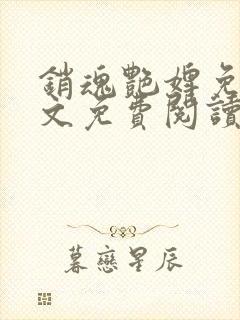 銷魂艷婢免
文免費閱讀
暮戀星辰